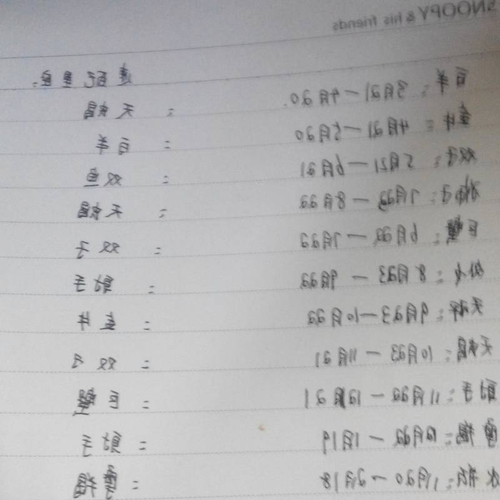 SNOOPY & his friends
白羊：3月21—4月20.
金牛：4月21—5月20 ：天蝎
双子：5月21—6月21 ：白羊
狮子：7月23—8月22 ：双鱼
巨蟹：6月22—7月22 ：天蝎
处女：8月23—9月22 ：双子
天秤：9月23—10月22 ：射手
天蝎：10月23—11月21 ：金牛
射手：11月22—12月21 ：双子
魔羯：12月22—1月19 ：巨蟹
水瓶：1月20—2月18 ：射手
：魔羯